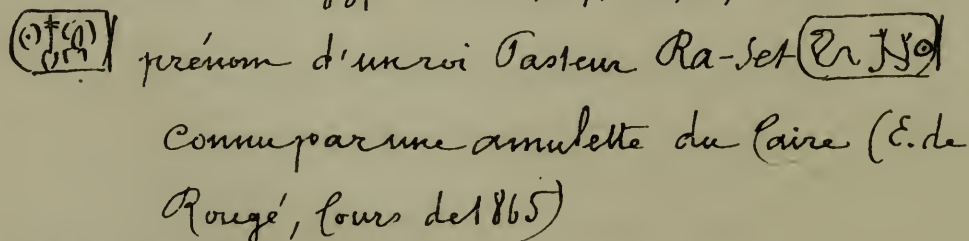 prénom d'un roi Pasteur Ra-Set
connu par une amulette du Caire (E. de
Rougé, Cours de 1865)